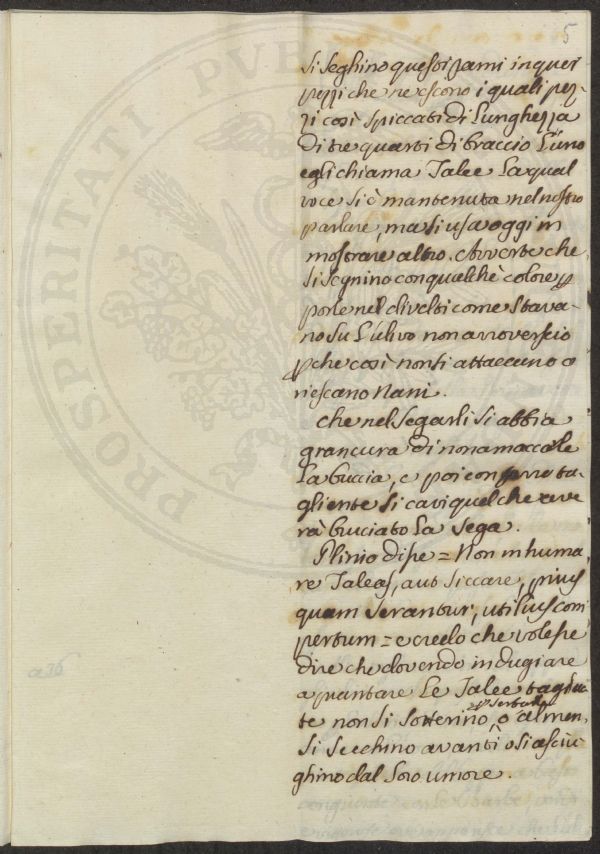 5
PROSPERITATI PUBLICAE
Si Seghino questi rami in quei
pezzi che ne escono i quali pez-
zi così spiccati di Lunghezza
di tre quarti di braccio L'uno
egli chiama Talee La qual
voce si è mantenuta nel nostro
parlare, ma si usa oggi in
mostrare altro. Avverte che
si segnino con qualche colore p
porle nel divelto come stava-
no su L'ulivo non a rovescio
pche così non si attaccano o
riescano Nani.
che nel Segarli si abbia
gran cura di non amaccarle
La buccia, e poi con ferro ta-
gliente si cavi quel che ave
rà bruciato La Sega.
Plinio disse = Non inhuma
re Taleas, aut Siccare, prius
quam Serantur, utilius com
pertum = e credo che volesse
dire che dovendo indugiare
a piantare Le Talee taglia
te non si Sotterino, p serbarle
o almen,
si Secchino avanti o si asciu
ghino dal Loro umore.
a36